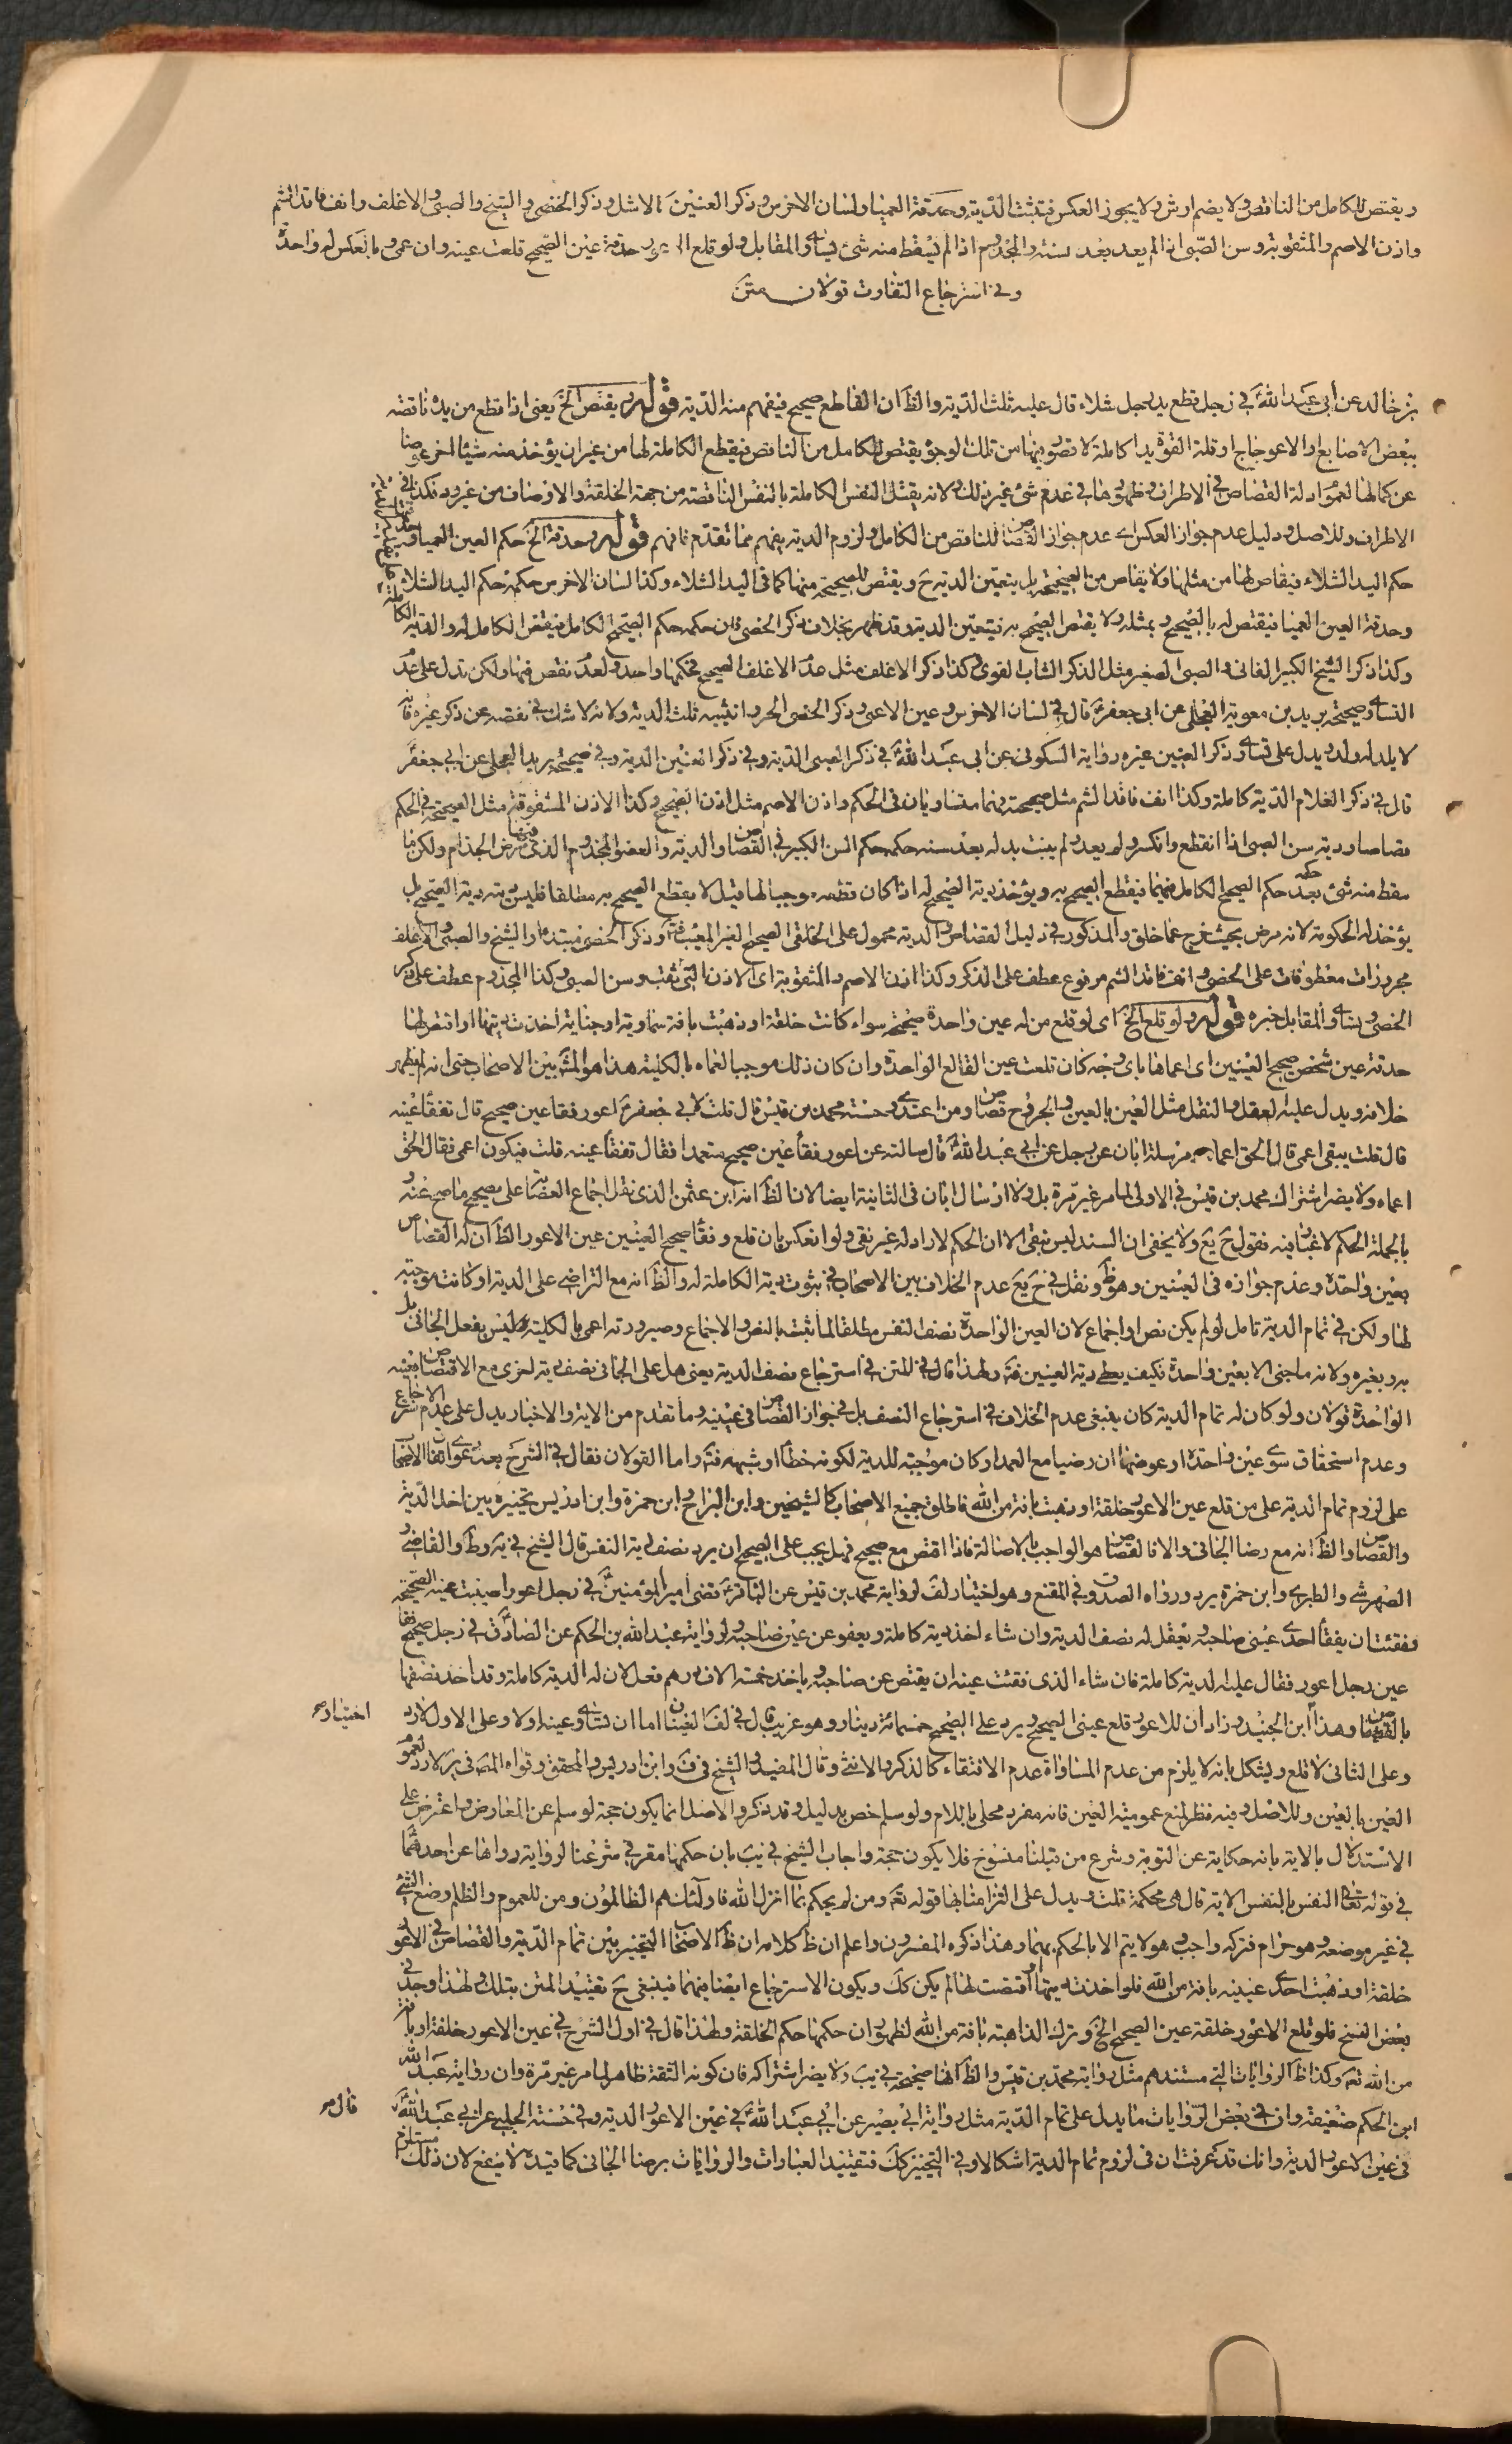 ويقتص للكامل من الناقص ولا يضم ارش ولا يجوز العكس فيثبت الدية وحدقة العمياء ولسان الاخرس وذكر العنين كالاشل وذكر الخصي والشيخ والصبي والاغلف وانف فاقد الشم
واذن الاصم والمثقوبة وسن الصبي اذا لم يعد بعد سنة والمجذوم اذا لم يسقط منه شئ يساوي المقابل ولو قلع الاعور حدقة عين الصحيح قلعت عينه وان عمى وبالعكس له واحدة
وفي استرجاع التفاوت قولان متن
بن خالد عن ابى عبد الله ع في رجل قطع يد رجل شلاء قال عليه ثلث الدية والظ ان القاطع صحيح فيفهم منه الدية قوله ويقتص الخ يعنى اذا قطع من يده ناقصة
ببعض الاصابع او الاعوجاج او قلة القوة يدا كاملة لا قصور فيها من تلك الوجوه يقتص للكامل من الناقص فيقطع الكاملة لها من غير ان يؤخذ منه شيئا اخر عوضا
عن كمالها لعموم ادلة القصاص في الاطراف وظهورها في عدم شئ غير ذلك ولانه يقتل النفس الكاملة بالنفس الناقصة من جهة الخلقة والاوصاف من غير رد فكذا في
الاطراف وللاصل ودليل عدم جواز العكس اى عدم جواز القصاص للناقص من الكامل ولزوم الدية يفهم مما تقدم فافهم قوله وحدقة الخ حكم العين العمياء
حكم اليد الشلاء فيقاص لها من مثلها ولا يقاص من الصحيحة بل يتعين الدية ح ويقتص للصحيحة منها كما في اليد الشلاء وكذا لسان الاخرس حكمه حكم اليد الشلاء
وحدقة العين العمياء فيقتص له بالصحيح وبمثله ولا يقتص الصحيح به فيتعين الدية وقد ظهر بخلاف ذكر الخصى فان حكمه حكم الصحيح الكامل فيقتص الكامل له
وكذا ذكر الشيخ الكبير الفانى والصبى الصغير مثل الذكر الشاب القوى وكذا ذكر الاغلف مثل عدم الاغلف الصحيح فحكمها واحد ولعدم نقص فيها ولكن تدل على عدم
التساوى صحيحة بريد بن معوية العجلى عن ابى جعفر ع قال في لسان الاخرس وعين الاعمى وذكر الخصى الحر وانثييه ثلث الدية ولانه لا شك في نقصه عن ذكر غيره فانه
لا يلد له ولد ويدل على تساوى ذكر العنين غيره رواية السكونى عن ابى عبد الله ع في ذكر الصبى الدية وفي ذكر العنين الدية وفي صحيحة بريد العجلى عن ابى جعفر ع
قال في ذكر الغلام الدية كاملة وكذا انف فاقد الشم مثل صحيحة فهما متساويان في الحكم واذن الاصم مثل اذن الصحيح وكذا الاذن المثقوبة مثل الصحيحة في الحكم
قصاصا ودية سن الصبى اذا انقطع وانكسر ولم يعد ولم ينبت بدله بعد سنة حكمه حكم السن الكبير في القصاص والدية والعضو المجذوم الذى فيه مرض الجذام ولكن ما
سقط منه شئ بعد حكمه حكم الصحيح الكامل فيهما فيقطع الصحيح به ويؤخذ دية الصحيح له اذا كان قطعه موجبا لها قيل لا يقطع الصحيح به مطلقا فليس ديته دية الصحيح بل
يؤخذ له الحكومة لانه مرض بحيث خرج عما خلق والمذكور في دليل القصاص والدية محمول على الخلقى الصحيح الغير المعيب فتأمل وذكر الخصى مبتدأ والشيخ والصبى والاغلف
مجرورات معطوفات على الخصى وانف فاقد الشم مرفوع عطف على الذكر وكذا اذن الاصم والمثقوبة اى الاذن التى ثقبت وسن الصبى وكذا المجذوم عطف على ذكر
الخصى ويساوى المقابل خبره قوله ولو قلع الخ اى لو قلع من له عين واحدة صحيحة سواء كانت خلقة او ذهبت بافة سماوية او جناية اخذت ديتها او اقتص لها
حدقة عين شخص صحيح العينين اى اعماها باى وجه كان قلعت عين القالع الواحدة وان كان ذلك موجبا لعماه بالكلية هذا هو المشهور بين الاصحاب حتى انه لم يظهر
خلافه ويدل عليه العقل والنقل مثل العين بالعين والجروح قصاص ومن اعتدى وحسنة محمد بن قيس قال قلت لابى جعفر ع اعور فقأ عين صحيح قال تفقأ عينه
قال قلت يبقى اعمى قال الحق اعماه ومرسلة ابان عن رجل عن ابى عبد الله ع قال سالته عن اعور فقأ عين صحيح متعمدا فقال تفقأ عينه قلت فيكون اعمى فقال الحق
اعماه ولا يضر اشتراك محمد بن قيس في الاولى لما مر غير مرة بل ولا ارسال ابان في الثانية ايضا لان الظ انه ابن عثمن الذى نقل اجماع العصابة على تصحيح ما صح عنه
بالجملة الحكم لا غبار فيه نقول ح يع ولا يخفى ان السند ليس بنقى الا ان الحكم لا راد له غير نقى ولو انعكس بان قلع وفقأ صحيح العينين عين الاعور الظ ان له القصاص
بعين واحدة وعدم جوازه في العينين وهو ظ ونقل في ح يع عدم الخلاف بين الاصحاب في ثبوت دية الكاملة له والظ انه مع التراضى على الدية او كانت موجبة
لها ولكن في تمام الدية تامل لو لم يكن نص او اجماع لان العين الواحدة نصف النفس مطلقا لما ثبت بالنص والاجماع وصيرورته اعمى بالكلية ليس بفعل الجانى بل
به وبغيره ولانه ما جنى الا بعين واحدة فكيف يعطى دية العينين فتأمل ولهذا قال في المتن في استرجاع نصف الدية يعنى هل على الجانى نصف دية اخرى مع الاقتصاص بعينه
الواحدة قولان ولو كان له تمام الدية كان ينبغى عدم الخلاف في استرجاع النصف بل في جواز القصاص في عينيه وما تقدم من الاية والاخبار يدل على عدم الاسترجاع
وعدم استحقاق سوى عين واحدة او عوضها ان رضيا مع العمد او كان موجبه للدية لكونه خطأ او شبهه فتأمل واما القولان فقال في الشرح بعد دعوى اتفاق الاصحاب
على لزوم تمام الدية على من قلع عين الاعور خلقة او ذهبت بافة من الله فاطلق جميع الاصحاب كالشيخين وابن البراج وابن حمزة وابن ادريس تخييره بين اخذ الدية
والقصاص والظ انه مع رضا الجانى والا فالقصاص هو الواجب بالاصالة فاذا اقتص مع صحيح فهل يجب على الصحيح ان يرد نصف دية النفس قال الشيخ في ية وط والقاضى
الصهرشتى والطبرسى وابن حمزة يرد ورواه الصدوق في المقنع وهو اختيار لف لرواية محمد بن قيس عن الباقر ع قضى امير المؤمنين ع في رجل اعور اصيبت عينه الصحيحة
ففقئت ان يفقأ احدى عينى صاحبه ويعقل له نصف الدية وان شاء اخذ دية كاملة ويعفو عن عين صاحبه ولرواية عبد الله بن الحكم عن الصادق ع في رجل صحيح فقأ
عين رجل اعور فقال عليه الدية كاملة فان شاء الذى فقئت عينه ان يقتص من صاحبه وياخذ خمسة الاف درهم فعل لان له الدية كاملة وقد اخذ نصفها
بالقصاص وهذا اختيار ابن الجنيد وزاد ان للاعور قلع عينى الصحيح ويرد على الصحيح خمسمائة دينار وهو غريب قال في لف العينان اما ان تساوى عينه اولا وعلى الاول لا رد
وعلى الثانى لا قلع ويشكل بانه لا يلزم من عدم المساواة عدم الاقتفاء كالذكر والانثى وقال المفيد والشيخ في ف وابن ادريس والمحقق وقواه المص في ير لا رد لعموم
العين بالعين وللاصل وفيه نظر لمنع عمومية العين فانه مفرد محلى باللام ولو سلم خص بدليل وقد ذكر والاصل انما يكون حجة لو سلم عن المعارض واعترض على
الاستدلال بالاية بانه حكاية عن التورية وشرع من قبلنا منسوخ فلا يكون حجة واجاب الشيخ في يب بان حكمها مقرر في شرعنا لرواية رواها عن احدهما ع
في قوله تعالى النفس بالنفس الاية قال هى محكمة قلت ويدل على التزامنا بها قوله تعه ومن لم يحكم بما انزل الله فاولئك هم الظالمون ومن للعموم والظلم وضع الشئ
في غير موضعه وهو حرام فتركه واجب وهو لا يتم الا بالحكم بهما وهذا ذكره المفسرون واعلم ان ظ كلامه ان ظ الاصحاب التخيير بين تمام الدية والقصاص في الاعور
خلقة او ذهبت احدى عينيه بافة من الله فلو اخذت ديتها او اقتصت لها لم يكن كك ويكون الاسترجاع ايضا فيهما فينبغى ح تقييد المتن بتلك ولهذا وجد في
بعض النسخ فلو قلع الاعور خلقة عين الصحيح الخ وترك الذاهبة بافة من الله لظهور ان حكمها حكم الخلقة ولهذا قال في اول الشرح في عين الاعور خلقة او بافة
من الله تعه وكذا ظ الروايات التى مستندهم مثل رواية محمد بن قيس والظ انها صحيحة في يب ولا يضر اشتراكه فان كونه الثقة ظاهر لما مر غير مرة وان رواية عبد الله
ابن الحكم ضعيفة وان في بعض الروايات ما يدل على تمام الدية مثل رواية ابى بصير عن ابى عبد الله ع قال في عين الاعور الدية وفي حسنة الحلبى عن ابى عبد الله ع
في عين الاعور الدية وانك قد عرفت ان في لزوم تمام الدية اشكالا وفي التخيير كك فتقييد العبارات والروايات برضا الجانى كما قيده لا ينفع لان ذلك مستلزم